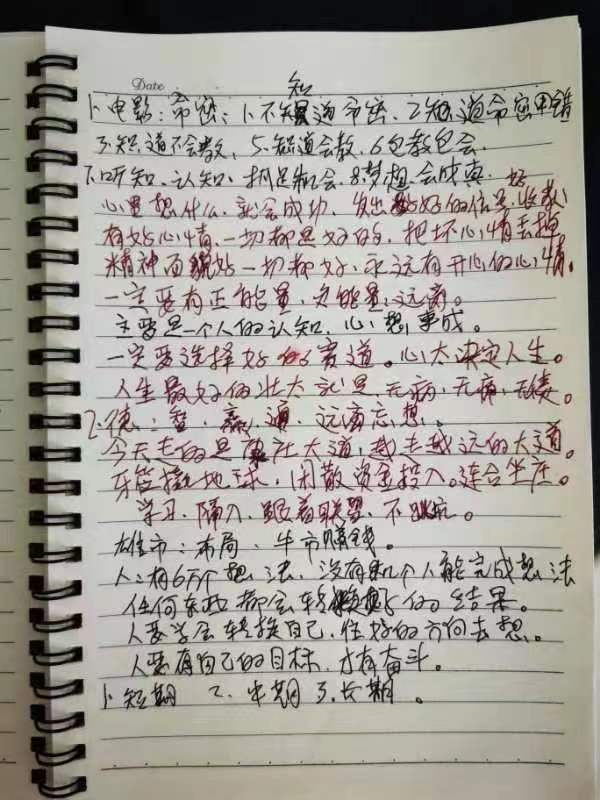 Date
知
1、电影:命密:1、不知道命密、2知道命密用错
3、知道不会教、5、知道会教、6包教包会、
7、听知、认知、抓住机会、8、梦想会成真、好
心里想什么、就会成功、发出好的信息、收获
有好心情、一切都是好的、把坏心情丢掉
精神面貌好一切都好、永远有开心的心情。
一定要有正能量、负能量远离。
主要是一个人的认知、心想事成。
一定要选择好的赛道。心太决定人生。
人生最好的壮太就是、无病、无痛、无债。
2、德:智、赢、通、远离忘想。
今天走的是 社大道、越走越远的大道。
牙签撬地球、闲散资金投入。连合坐庄。
学习、隔入、跟着联盟、不跳坑。
雄市:布局、牛市赚钱。
人:有6万个想法、没有几个人能完成想法
任何东西都会转换好的结果。
人要学会转换自己、住好的方向去想。
人要有自己的目标、才有奋斗。
1、短期 2、中期 3、长期。